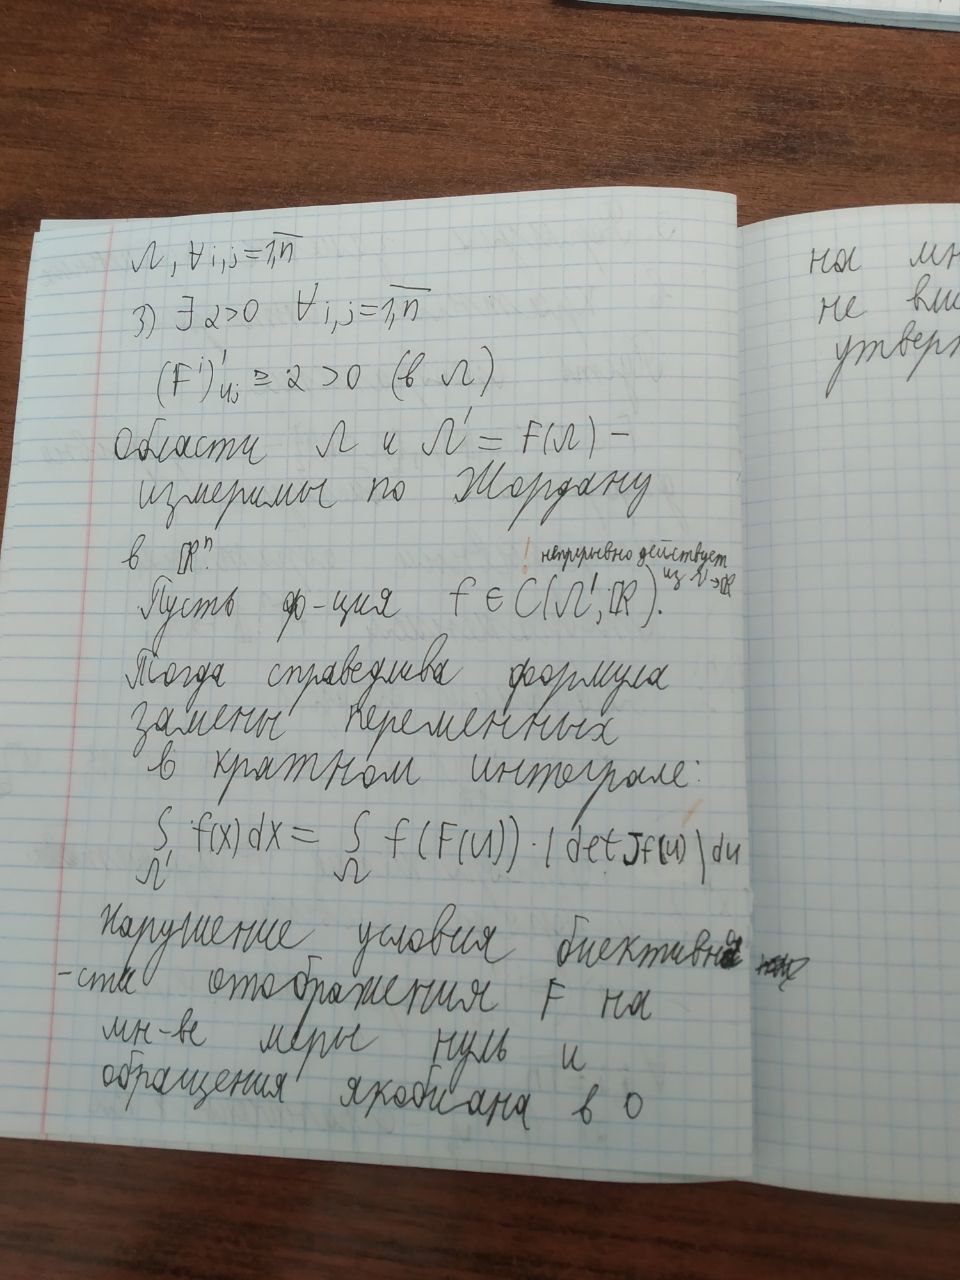 Ω, ∀i,j=1,n̅
3) ∃ α>0 ∀i,j=1,n̅
(Fⁱ)'uⱼ ≥ α >0 (в Ω)
Области Ω и Ω' = F(Ω) –
измеримы по Жордану
в ℝⁿ.
! непрерывно действует
из Ω'→ℝ
Пусть ф-ция f ∈ C(Ω'; ℝ).
Тогда справедлива формула
замены переменных
в кратном интеграле:
∫Ω' f(x)dx = ∫Ω f(F(u))·|det Jf(u)|du
Нарушение условия биективно
-сти отображения F на
мн-ве меры нуль и
обращения якобиана в 0
на мн
не вли
утверж